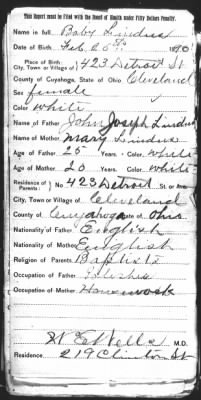 This Report must be filed with the Board of Health under Fifty Dollars Penalty.
Name in full, Baby Lindus
Date of Birth, Feb 25th 1890
Place of Birth
City, Town or Village of } 423 Detroit St
County of Cuyahoga, State of Ohio Cleveland
Sex female
Color white
Name of Father John Joseph Lindus
Name of Mother Mary Lindus
Age of Father 25 Years. - Color, white
Age of Mother 20 Years. - Color, white
Residence of Parents: } No 423 Detroit St. or Ave.
City, Town or Village of Cleveland
County of Cuyahoga State of Ohio
Nationality of Father English
Nationality of Mother English
Religion of Parents Baptists
Occupation of Father
Occupation of Mother Housework
W E Wells M.D.
Residence, 219 Clinton St